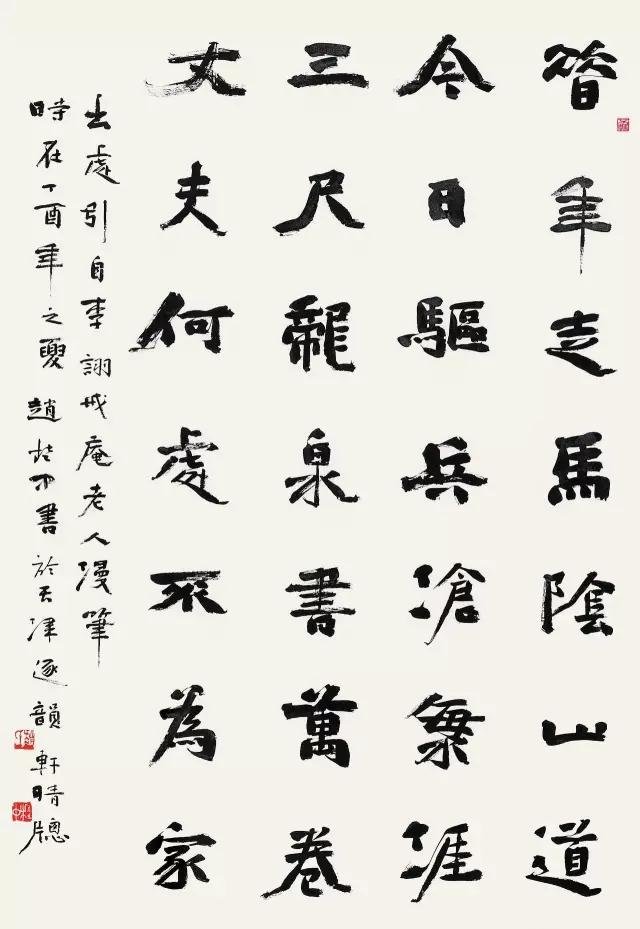 昔年走馬陰山道
今日驅兵滄無涯
三尺龍泉書萬卷
丈夫何處不為家
出處引自李詡戒庵老人漫筆
時在丁酉年之夏 趙書於天津逐韻軒晴牕